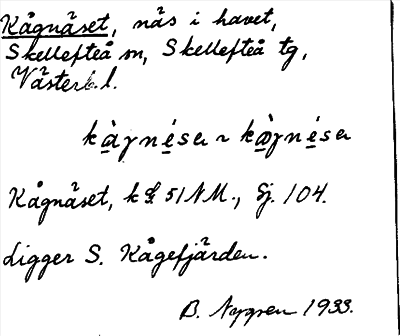 Kågnäset, näs i havet,
Skellefteå sn, Skellefteå tg,
Västerb. l.
kàγnésɐ ~ kàγnésɐ
Kågnäset, k 51 NM., Sj. 104.
Ligger S. Kågefjärden.
B. Nygren 1933.